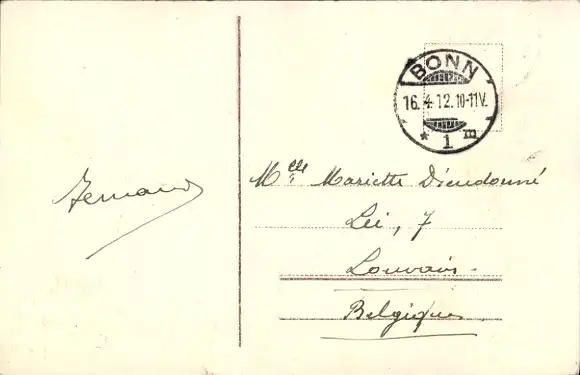 BONN
16.4.12.10-11V.
* 1 m
Fernand
Mlle Mariette Dieudonné
Lei, 7
Louvain
Belgique